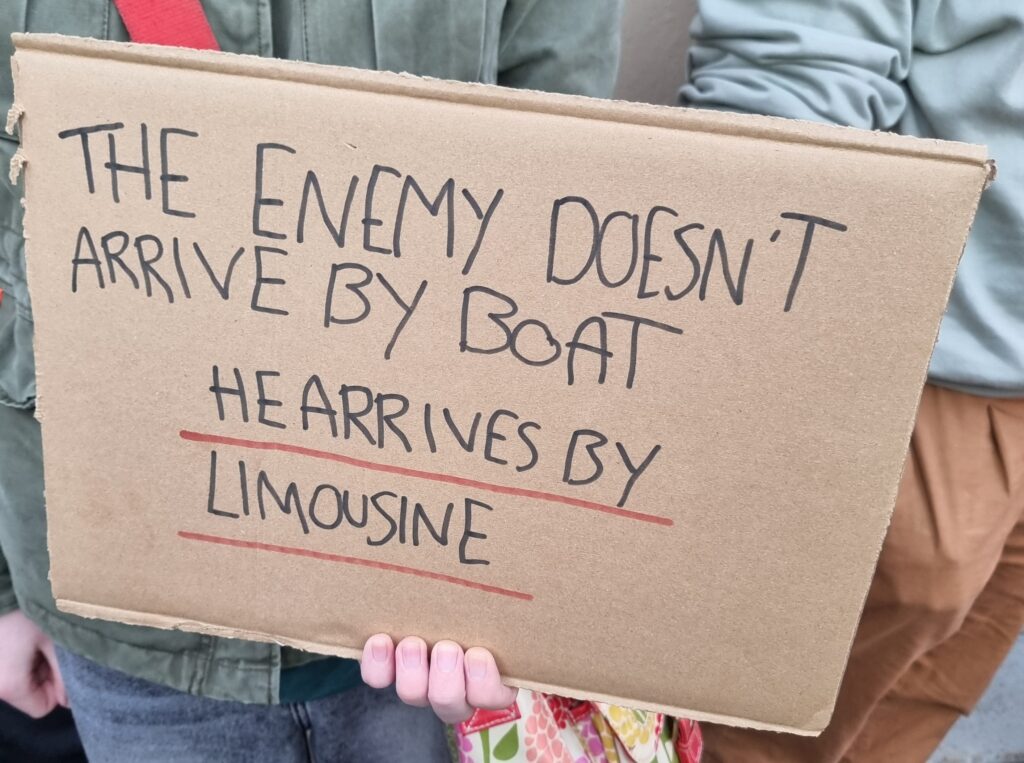 THE ENEMY DOESN'T
ARRIVE BY BOAT
HE ARRIVES BY
LIMOUSINE